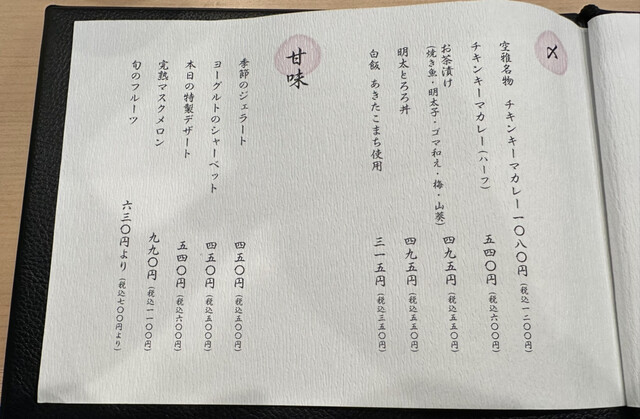 〆
空雅名物 チキンキーマカレー 一〇八〇円(税込一二〇〇円)
チキンキーマカレー(ハーフ) 五四〇円(税込六〇〇円)
お茶漬け 四九五円(税込五五〇円)
(焼き魚・明太子・ゴマ和え・梅・山葵)
明太とろろ丼 四九五円(税込五五〇円)
白飯 あきたこまち使用 三一五円(税込三五〇円)
甘味
季節のジェラート 四五〇円(税込五〇〇円)
ヨーグルトのシャーベット 四五〇円(税込五〇〇円)
本日の特製デザート 五四〇円(税込六〇〇円)
完熟マスクメロン 九九〇円(税込一一〇〇円)
旬のフルーツ 六三〇円より(税込七〇〇円より)